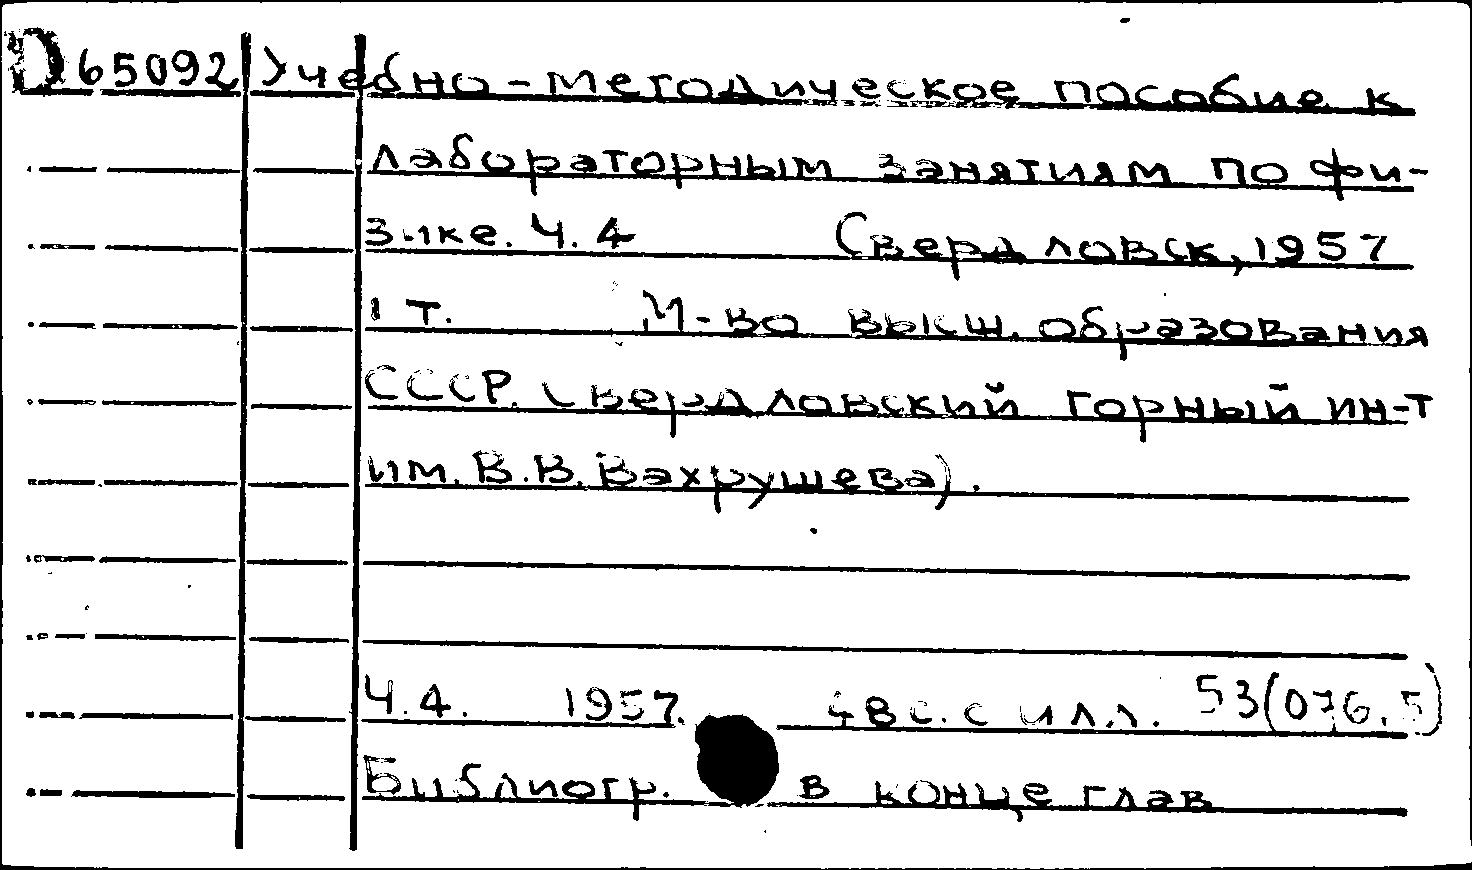 D 65092 Учебно-методическое пособие к
лабораторным занятиям по фи-
зике. Ч. 4 Свердловск, 1957
1 т. М-во высш. образования
СССР. Свердловский горный ин-т
им. В. В. Вахрушева).
Ч. 4. 1957. 48 с. с илл. 53(076.5)
Библиогр. в конце глав